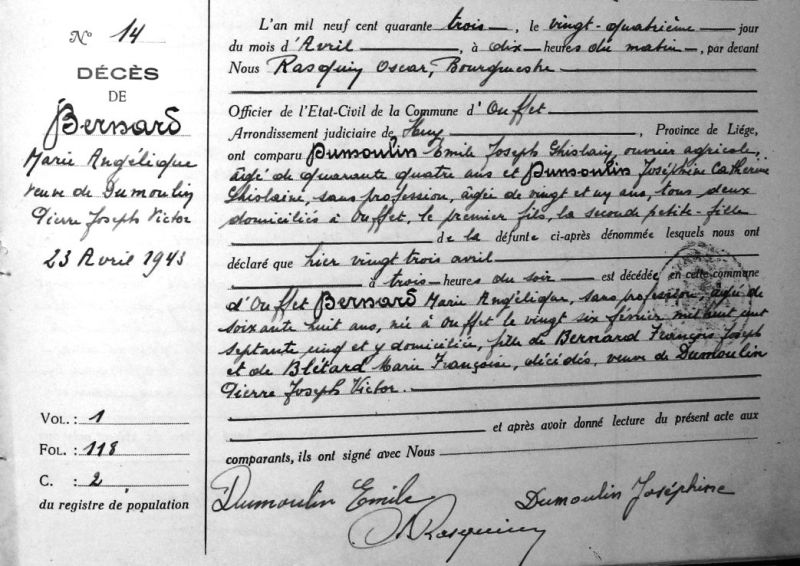 N° 14
DÉCÈS
DE
Bernard
Marie Angélique
veuve de Dumoulin
Pierre Joseph Victor
23 Avril 1943
VOL. : 1
FOL. : 118
C. : 2
du registre de population
L'an mil neuf cent quarante trois, le vingt-quatrième jour
du mois d'Avril, à dix heures du matin, par devant
Nous Rasquin Oscar, Bourgmestre
Officier de l'Etat-Civil de la Commune d'Ouffet
Arrondissement judiciaire de Huy, Province de Liége,
ont comparu Dumoulin Emile Joseph Ghislain, ouvrier agricole,
âgé de quarante quatre ans et Dumoulin Joséphine Catherine
Ghislaine, sans profession, âgée de vingt et un ans, tous deux
domiciliés à Ouffet, le premier fils, la seconde petite-fille
de la défunte ci-après dénommée lesquels nous ont
déclaré que hier vingt trois avril
à trois heures du soir est décédée en cette commune
d'Ouffet Bernard Marie Angélique, sans profession, âgée de
soixante huit ans, née à Ouffet le vingt six février mil huit cent
septante cinq et y domiciliée, fille de Bernard François Joseph
et de Blétard Marie Françoise, décédés, veuve de Dumoulin
Pierre Joseph Victor.
et après avoir donné lecture du présent acte aux
comparants, ils ont signé avec Nous
Dumoulin Emile
Dumoulin Joséphine
Rasquin